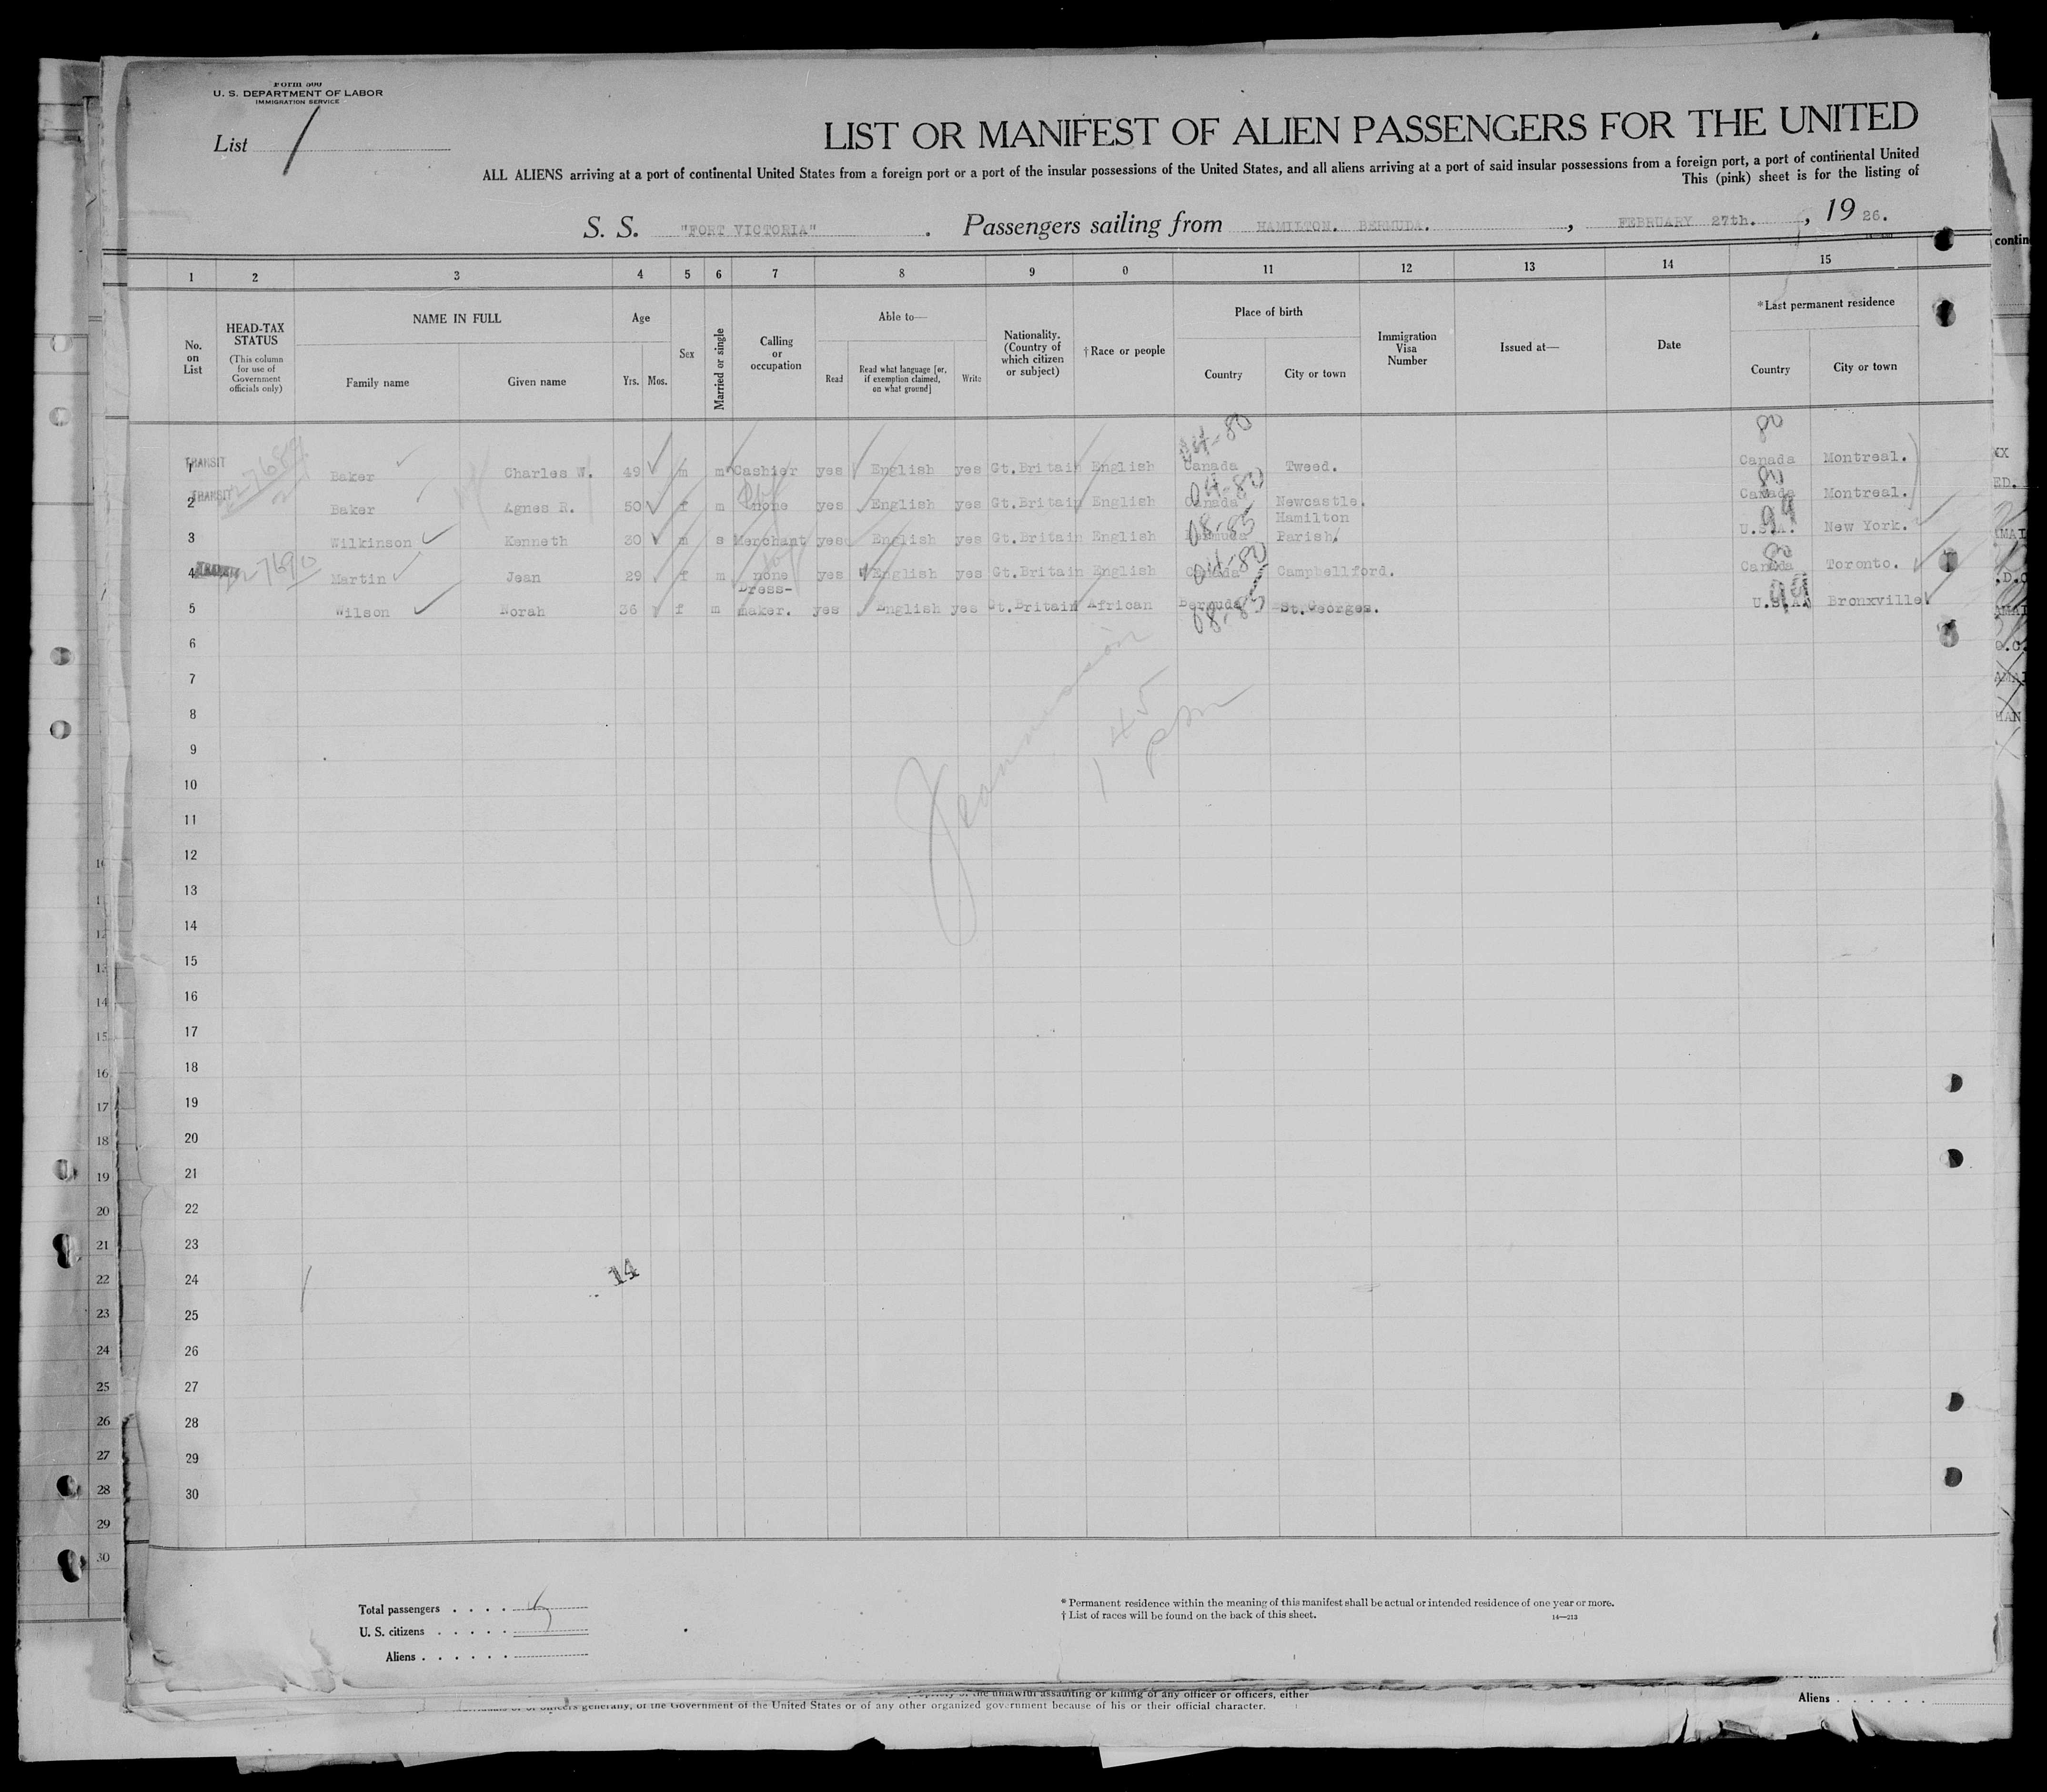 Form 500
U. S. DEPARTMENT OF LABOR
IMMIGRATION SERVICE
List 1
LIST OR MANIFEST OF ALIEN PASSENGERS FOR THE UNITED
ALL ALIENS arriving at a port of continental United States from a foreign port or a port of the insular possessions of the United States, and all aliens arriving at a port of said insular possessions from a foreign port, a port of continental United
This (pink) sheet is for the listing of
S. S. "FORT VICTORIA". Passengers sailing from HAMILTON. BERMUDA. , FEBRUARY 27th. , 19 26.
contin
1 2 3 4 5 6 7 8 9 0 11 12 13 14 15
No. on List
HEAD-TAX STATUS
(This column for use of Government officials only)
NAME IN FULL
Family name Given name
Age
Yrs. Mos.
Sex
Married or single
Calling or occupation
Able to—
Read Read what language [or, if exemption claimed, on what ground] Write
Nationality. (Country of which citizen or subject)
†Race or people
Place of birth
Country City or town
Immigration Visa Number
Issued at—
Date
*Last permanent residence
Country City or town
04-80 80
1 TRANSIT Baker Charles W. 49 m m Cashier yes English yes Gt.Britain English Canada Tweed. Canada Montreal.
04-80 80
2 TRANSIT Baker Agnes R. 50 f m none yes English yes Gt.Britain English Canada Newcastle. Canada Montreal.
08-85 99
3 Wilkinson Kenneth 30 m s Merchant yes English yes Gt.Britain English Bermuda Hamilton Parish. U.S.A. New York.
04-80 80
4 TRANSIT 7690 Martin Jean 29 f m none yes English yes Gt.Britain English Canada Campbellford. Canada Toronto.
08-85 99
5 Wilson Norah 36 f m Dress-maker. yes English yes Gt.Britain African Bermuda St.Georges. U.S.A. Bronxville
6
7
1 45
pm
8
9
10
11
12
13
14
15
16
17
18
19
20
21
22
23
24 14
25
26
27
28
29
30
Total passengers . . . . 5
U. S. citizens . . . . .
Aliens . . . . . .
* Permanent residence within the meaning of this manifest shall be actual or intended residence of one year or more.
† List of races will be found on the back of this sheet.
14—213
the unlawful assaulting or killing of any officer or officers, either
officers generally, of the Government of the United States or of any other organized government because of his or their official character.
Aliens . . . . . .